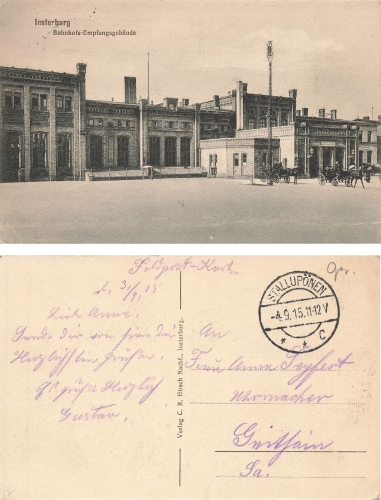 Insterburg
Bahnhofs-Empfangsgebäude
Feldpost-Karte
d. 3./9. 15
Opr.
STALLUPÖNEN
-4.9.15.11-12V
* * C
Liebe Anna.
Sende dir von hier die
Herzlichsten Grüße.
Es grüßt Herzlich
Gustav.
Verlag C. R. Hirsch Nachf., Insterburg.
An
Frau Anna Seyfert
Uhrmacher
Geithain
Sa.